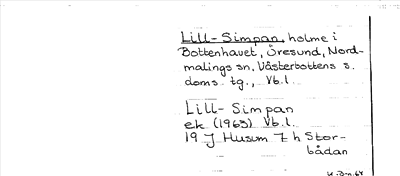 Lill-Simpan, holme i
Bottenhavet, Öresund, Nord-
malings sn. Västerbottens s.
doms. tg., Vb.l.
Lill-Simpan
ek (1963) Vb.l.
19 J Husum 7 h Stor-
bådan